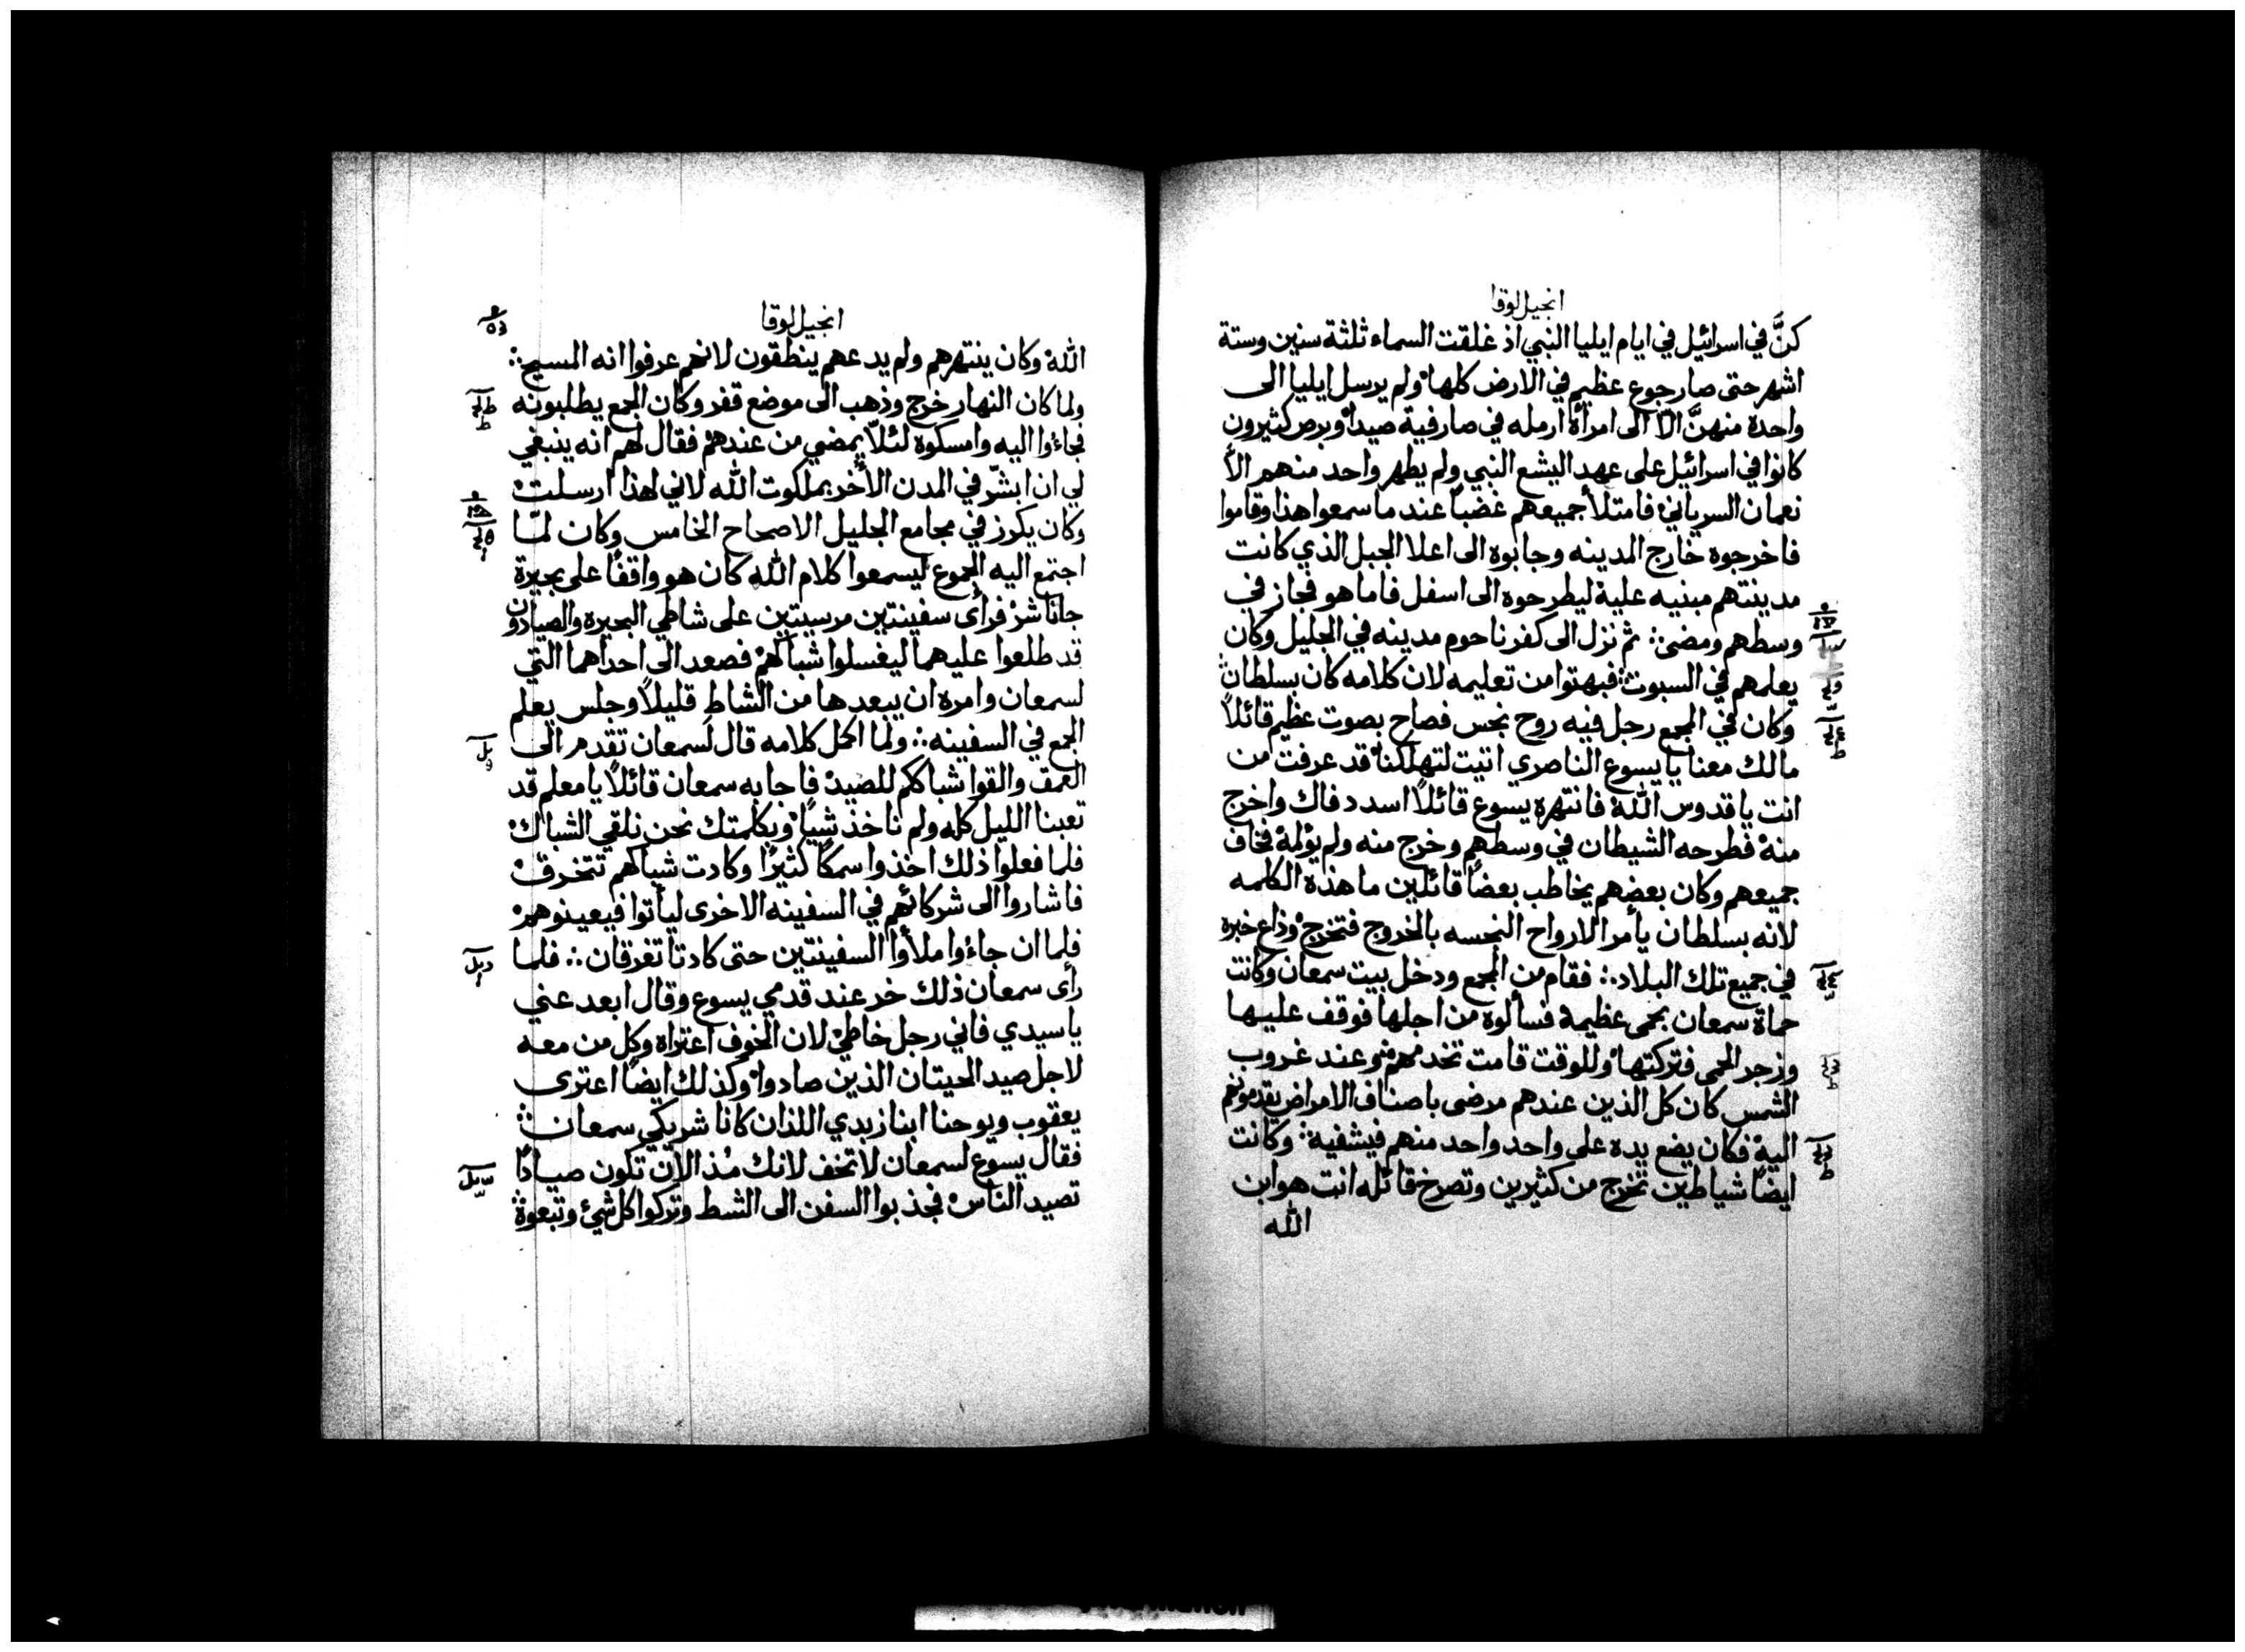 انجيل لوقا
كنَّ في اسرائيل في ايام ايليا النبي اذ غلقت السماء ثلثة سنين وستة
اشهر حتى صار جوع عظيم في الارض كلها ولم يرسل ايليا الى
واحدة منهنَّ الّا الى امرأة ارمله في صارفية صيدا وبرص كثيرون
كانوا في اسرائيل على عهد اليشع النبي ولم يطهر واحد منهم الّا
نعمان السرياني فامتلأ جميعهم غضباً عند ما سمعوا هذا وقاموا
فاخرجوه خارج المدينه وجابوه الى اعلا الجبل الذي كانت
مدينتهم مبنيه عليه ليطرحوه الى اسفل فاما هو فجاز في
وسطهم ومضى ∴ ثم نزل الى كفرناحوم مدينه في الجليل وكان
يعلمهم في السبوت ∴ فبهتوا من تعليمه لان كلامه كان بسلطان
وكان في المجمع رجل فيه روح نجس فصاح بصوت عظيم قائلاً
مالك معنا يا يسوع الناصري اتيت لتهلكنا قد عرفت من
انت يا قدوس الله فانتهره يسوع قائلاً اسدد فاك واخرج
منه فطرحه الشيطان في وسطهم وخرج منه ولم يؤلمه فخاف
جميعهم وكان بعضهم يخاطب بعضاً قائلين ما هذه الكلمه
لانه بسلطان يأمر الارواح النجسه بالخروج فتخرج وذاع خبره
في جميع تلك البلاد ∴ فقام من المجمع ودخل بيت سمعان وكانت
حماة سمعان بحمى عظيمة فسألوه من اجلها فوقف عليها
وزجر الحمى فتركتها وللوقت قامت تخدمهم وعند غروب
الشمس كان كل الذين عندهم مرضى باصناف الامراض يقدمونهم
اليه فكان يضع يده على واحد واحد منهم فيشفيه ∴ وكانت
ايضاً شياطين تخرج من كثيرين وتصرخ قائله انت هو ابن
الله
انجيل لوقا
الله وكان ينتهرهم ولم يدعهم ينطقون لانهم عرفوا انه المسيح ∴
ولما كان النهار خرج وذهب الى موضع قفر وكان الجمع يطلبونه
فجاءوا اليه وامسكوه لئلّا يمضي من عندهم فقال لهم انه ينبغي
لي ان ابشّر في المدن الأخر بملكوت الله لاني لهذا ارسلت
وكان يكرز في مجامع الجليل الاصحاح الخامس وكان لما
اجتمع اليه الجموع ليسمعوا كلام الله كان هو واقفاً على بحيرة
جاناشر فرأى سفينتين مرسيتين على شاطي البحيره والصيادون
قد طلعوا عليهما ليغسلوا شباكهم فصعد الى احداهما التي
لسمعان وامره ان يبعدها من الشاط قليلاً وجلس يعلم
الجمع في السفينه ∴ ولما اكمل كلامه قال لسمعان تقدم الى
العمق والقوا شباككم للصيد فاجابه سمعان قائلاً يا معلم قد
تعبنا الليل كله ولم ناخذ شيأً وبكلمتك نحن نلقي الشباك
فلما فعلوا ذلك اخذوا سمكاً كثيرًا وكادت شباكهم تتخرق
فاشاروا الى شركائهم في السفينه الاخرى ليأتوا فيعينوهم
فلما ان جاءوا ملأوا السفينتين حتى كادتا تغرقان ∴ فلما
رأى سمعان ذلك خر عند قدمي يسوع وقال ابعد عني
يا سيدي فاني رجل خاطئ لان الخوف اعتراه وكل من معه
لاجل صيد الحيتان الذين صادوا وكذلك ايضاً اعترى
يعقوب ويوحنا ابنا زبدي اللذان كانا شريكي سمعان ∴
فقال يسوع لسمعان لا تخف لانك مُنذ الآن تكون صيادًا
تصيد الناس فجذبوا السفن الى الشط وتركوا كل شئ وتبعوه ∴